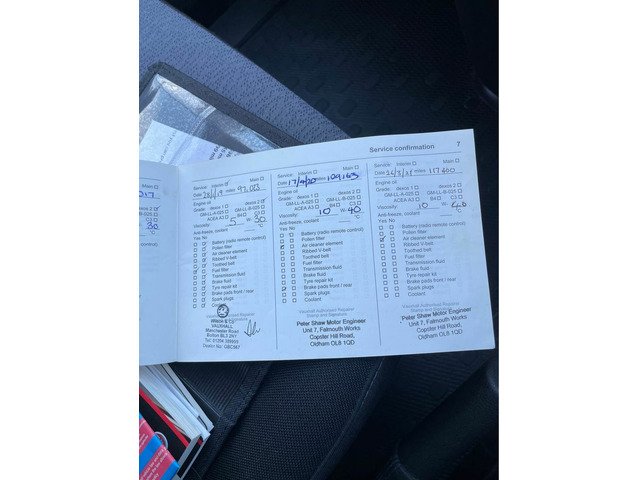 Service confirmation 7
Main ☐
Service: Interim Main ☐
Date miles 92,023
Engine oil
Grade: dexos 1 ☐ dexos 2
GM-LL-A-025 ☐ GM-LL-B-025 ☐
ACEA A3 ☐ B4 ☐ C3 ☐
Viscosity: 5 W- 30
Anti-freeze, coolant °C
Yes No
Battery (radio remote control)
Pollen filter
Air cleaner element
Ribbed V-belt
Toothed belt
Fuel filter
Transmission fluid
Brake fluid
Tyre repair kit
Brake pads front / rear
Spark plugs
Coolant
Vauxhall Authorised Repairer
Stamp and Signature
VAUXHALL
Manchester Road
Bolton BL3 2NY
Service: Interim ☐ Main ☐
Date 17/9/20 miles 109,163
Engine oil
Grade: dexos 1 ☐ dexos 2 ☐
GM-LL-A-025 ☐ GM-LL-B-025 ☐
ACEA A3 ☐ B4 ☐ C3 ☐
Viscosity: 10 W- 40
Anti-freeze, coolant °C
Yes No
Battery (radio remote control)
Pollen filter
Air cleaner element
Ribbed V-belt
Toothed belt
Fuel filter
Transmission fluid
Brake fluid
Tyre repair kit
Brake pads front / rear
Spark plugs
Coolant
Vauxhall Authorised Repairer
Stamp and Signature
Peter Shaw Motor Engineer
Unit 7, Falmouth Works
Copster Hill Road,
Oldham OL8 1QD
Service: Interim ☐ Main ☐
Date miles 117600
Engine oil
Grade: dexos 1 ☐ dexos 2 ☐
GM-LL-A-025 ☐ GM-LL-B-025 ☐
ACEA A3 ☐ B4 ☐ C3 ☐
Viscosity: 10 W- 40
Anti-freeze, coolant °C
Yes No
Battery (radio remote control)
Pollen filter
Air cleaner element
Ribbed V-belt
Toothed belt
Fuel filter
Transmission fluid
Brake fluid
Tyre repair kit
Brake pads front / rear
Spark plugs
Coolant
Vauxhall Authorised Repairer
Stamp and Signature
Peter Shaw Motor Engineer
Unit 7, Falmouth Works
Copster Hill Road,
Oldham OL8 1QD